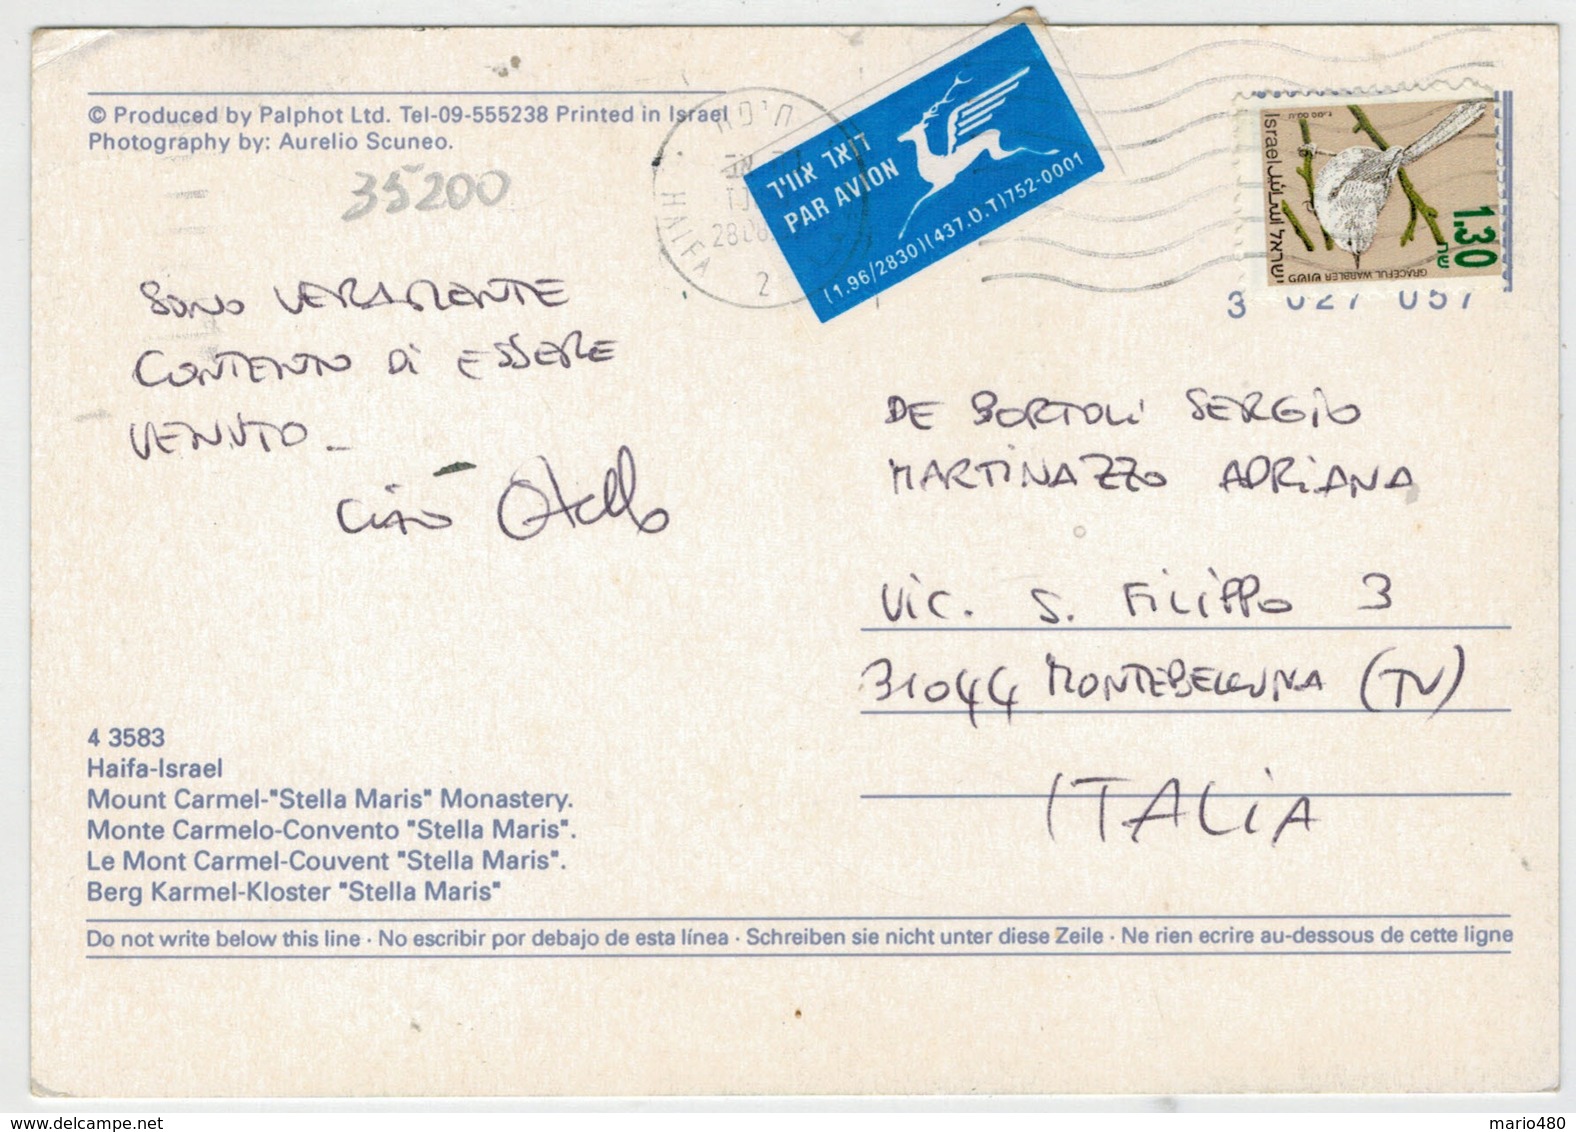 © Produced by Palphot Ltd. Tel-09-555238 Printed in Israel
Photography by: Aurelio Scuneo.
35200
חיפה
HAIFA
2
דואר אוויר
PAR AVION
(1.96/2830)(437.ט.ד)752-0001
Israel اسرائيل ישראל
1.30
GRACEFUL WARBLER פשוש
3 027 057
SONO VERAMENTE
CONTENTO DI ESSERE
VENUTO _
CIAO
DE BORTOLI SERGIO
MARTINAZZO ADRIANA
VIC. S. FILIPPO 3
31044 MONTEBELLUNA (TV)
ITALIA
4 3583
Haifa-Israel
Mount Carmel-"Stella Maris" Monastery.
Monte Carmelo-Convento "Stella Maris".
Le Mont Carmel-Couvent "Stella Maris".
Berg Karmel-Kloster "Stella Maris"
Do not write below this line · No escribir por debajo de esta línea · Schreiben sie nicht unter diese Zeile · Ne rien ecrire au-dessous de cette ligne
mario480